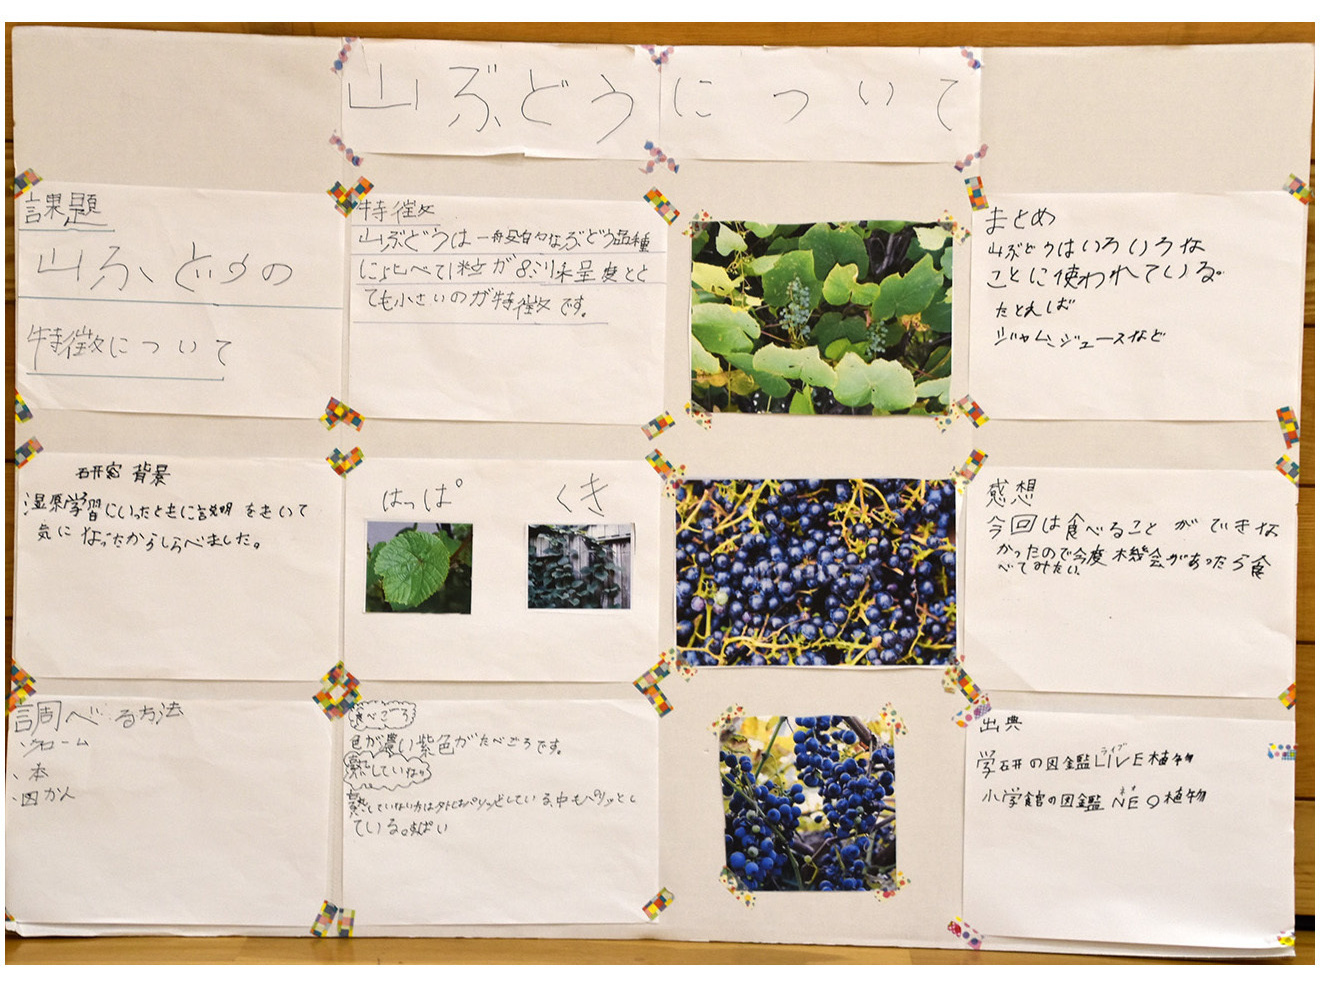 山ぶどうについて
課題
山ぶどうの
特徴について
研究背景
湿原学習にいったときに説明をきいて
気になったからしらべました。
調べる方法
、クローム
、本
、図かん
特徴
山ぶどうは一般的なぶどう品種
に比べて1粒が8ミリ程度とと
ても小さいのが特徴です。
はっぱ
くき
食べごろ
色が濃い紫色がたべごろです。
熟していない
熟していない方は外はパリッとしている中もパリッとし
ている。すっぱい
まとめ
山ぶどうはいろいろな
ことに使われている。
たとえば
ジャム、ジュースなど
感想
今回は食べることができな
かったので今度機会があったら食
べてみたい。
出典
学研の図鑑LIVE植物
ライブ
小学館の図鑑NEO植物
ネオ